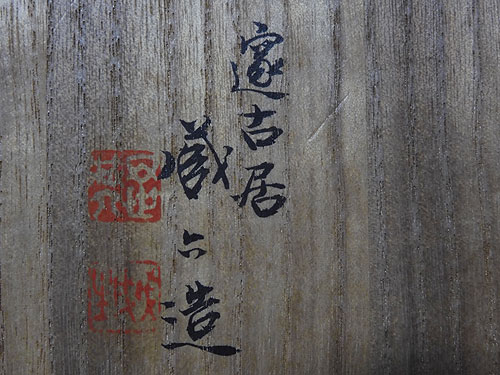 邃古居
蔵六造